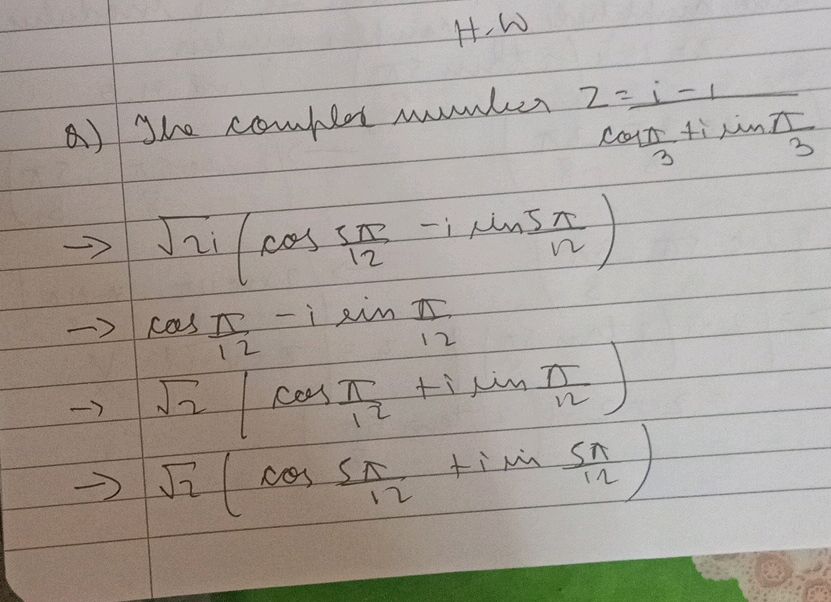 H.W
Q) The complex number z = i - 1 / cos π/3 + i sin π/3
→ √2i (cos 5π/12 - i sin 5π/12)
→ cos π/12 - i sin π/12
→ √2 (cos π/12 + i sin π/12)
→ √2 (cos 5π/12 + i sin 5π/12)